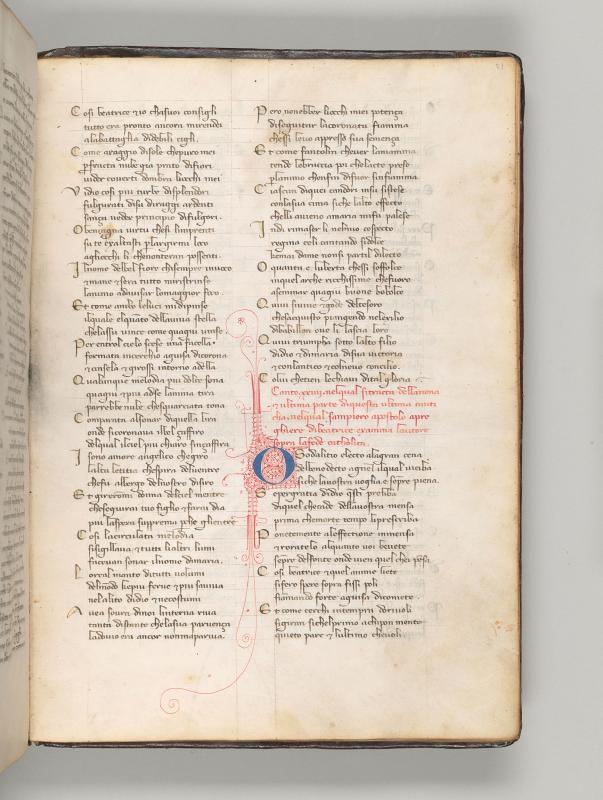 Cosi beatrice & io chasuoi consigli
tutto era pronto ancora mirendei
alabattaglia didebili cigli
Come araggio disole chepuro mei
perfracta nube gia prato difiori
uider coverti dombra liocchi mei
Vidio cosi piu turbe displendori
fulgurati disu diraggi ardenti
sença ueder principio difulgori
O benigna uirtu chesi limprenti
su te exaltasti plargirmi loco
agliocchi li chenonteran possenti
Ilnome delbel fiore chisempre inuoco
& mane & sera tutto mi
lanimo adauisar lomaggior foco
Et come ambo leluci midipinse
ilquale elquanto dellauiua stella
chelassu uince come quagiu uinse
Per entrol cielo scese una facella
formata incerchio aguisa dicorona
& cinsela & girossi intorno adella
Qualunque melodia piu dolce sona
quagiu & piu adse lanima tira
parrebbe nube chesquarciata tona
Comparata alsonar diquella lira
onde sicoronaua ilbel çaffiro
delqual ilciel piu chiaro sinçaffira
I sono amore angelico chegiro
lalta letitia chespira delventre
chefu albergo delnostro disire
Et girerommi donna delciel mentre
cheseguirai tuo figlio & farai dia
piu laspera supprema perche glientre
Cosi lacirculata melodia
sisigillaua & tutti lialtri lumi
facean sonar ilnome dimaria
Loreal manto dituti uolumi
delmondo chepiu ferue & piu sauiua
nelalito didio & necostumi
Avea soura dinoi linterna riua
tanto distante chelasua paruença
ladouio era ancor nonmapariua
Pero nonebber liocchi miei potença
diseguitar lacoronata fiamma
chessi leuo appresso sua semença
Et come fantolin cheuer lamamma
tende lebraccia poi chelacte prese
planimo chenfin difuor sinfiamma
Ciascun diquei candori insu sistese
conlasua cima siche lalto effecto
chelli aueno amaria mifu palese
Indi rimaser li nelmio cospecto
regina celi cantando sidolce
chemai dame nonsi parti ildilecto
O quanta e luberta chessi soffolce
inquel arche ricchissime chefuoro
aseminar quagiu buone bobolce
Quiui siuiue & gode deltesoro
chesacquisto piangendo nelexilio
dibabillon oue si lascia loro
Quiui triumpha sotto lalto filio
didio & dimaria disua uictoria
& conlantico & colnouo concilio
Colui chetien lechiaui dital gloria
Canto xxiiij nelqual sitracta dellanona
& ultima parte diquesta ultima canti
cha nelqual sampiero apostolo apre
gliere dibeatrice examina lautore
sopra lafede catholica
O Sodalitio electo alagran cena
delbenedecto agnel ilqual uiciba
siche lauostra uoglia e sempre piena
Sepergratia didio questi preliba
diquel checade dellauostra mensa
prima chemorte tempo liprescriba
Ponetemente alaffectione immensa
& roratelo alquanto uoi beuete
sempre delfonte onde uien quel chei pensa
Cosi beatrice & quel anime liete
sifero spere sopra fissi poli
fiamando forte aguisa dicomete
Et come cerchi intempra doriuoli
sigiran sichelprimo achipon mente
quieto pare & lultimo cheuoli